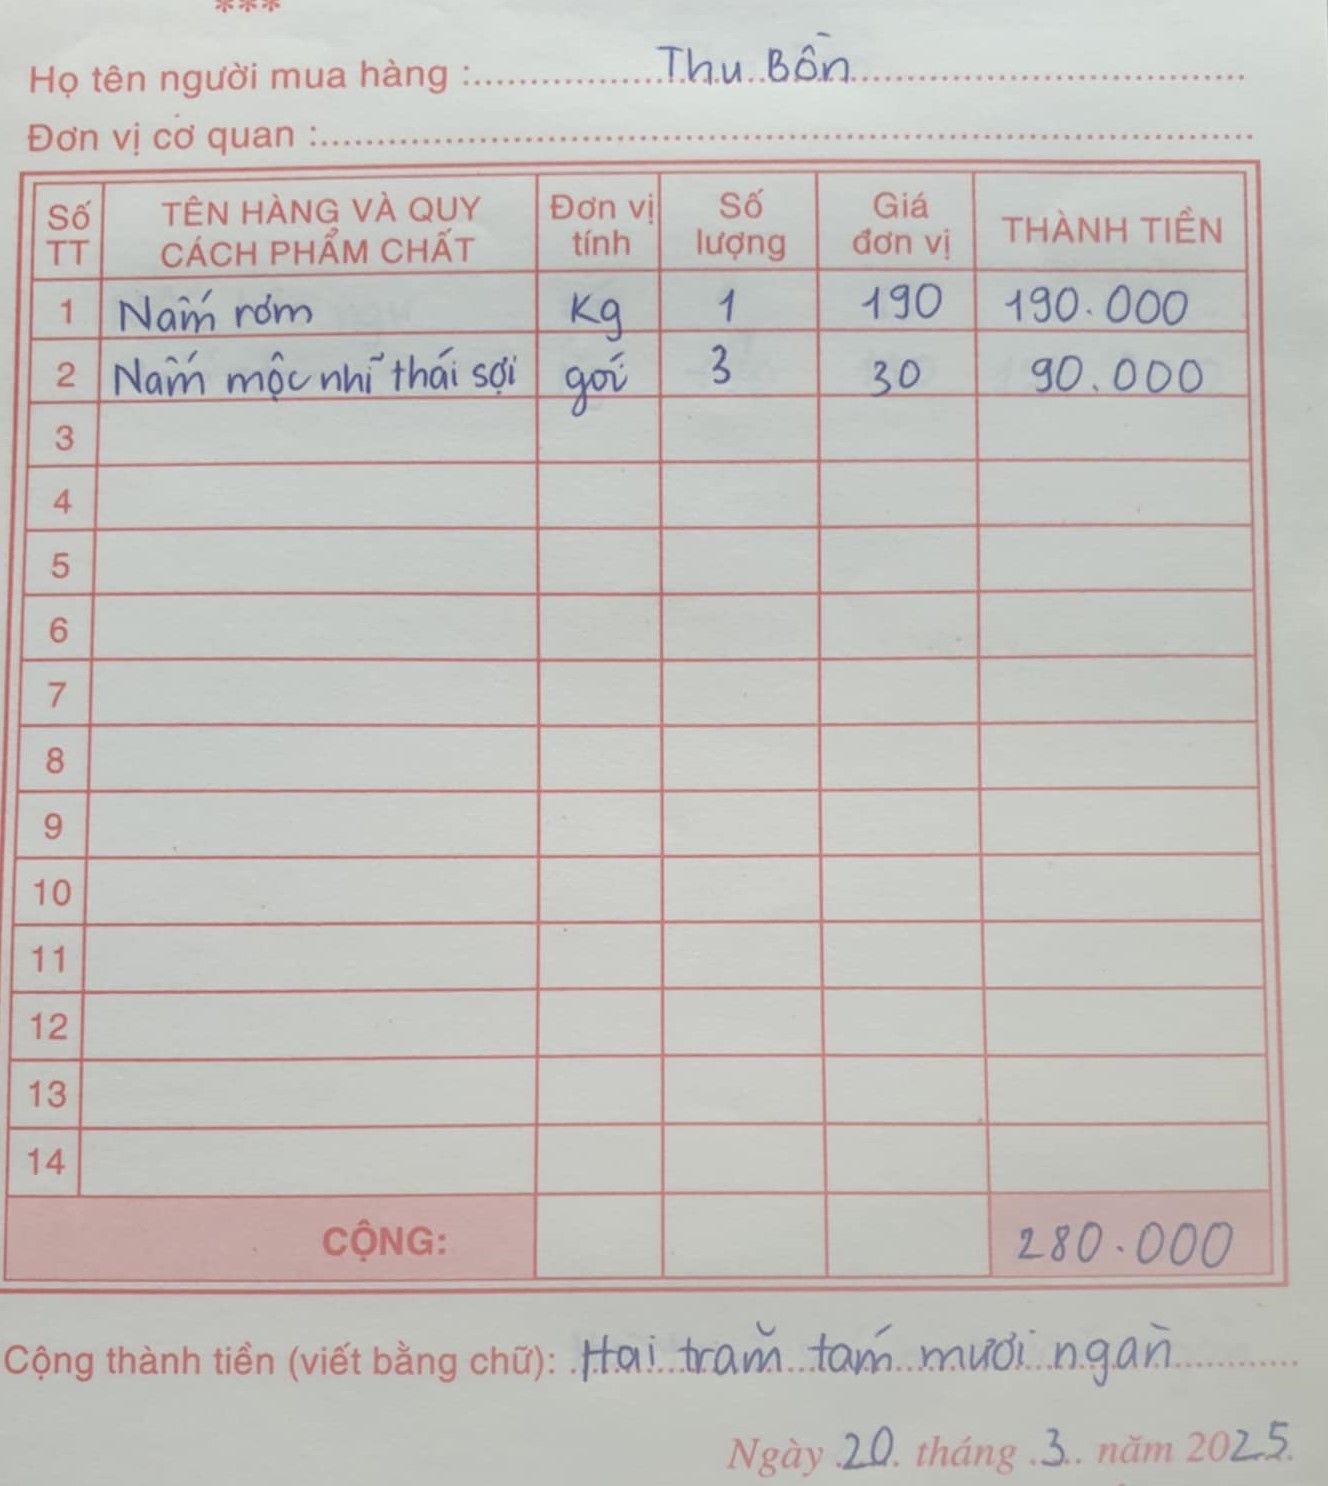 ***
Họ tên người mua hàng : Thu Bồn
Đơn vị cơ quan :
Số TT TÊN HÀNG VÀ QUY CÁCH PHẨM CHẤT Đơn vị tính Số lượng Giá đơn vị THÀNH TIỀN
1 Nấm rơm Kg 1 190 190.000
2 Nấm mộc nhĩ thái sợi gói 3 30 90.000
3
4
5
6
7
8
9
10
11
12
13
14
CỘNG: 280.000
Cộng thành tiền (viết bằng chữ): Hai trăm tám mươi ngàn
Ngày 20 tháng 3 năm 2025